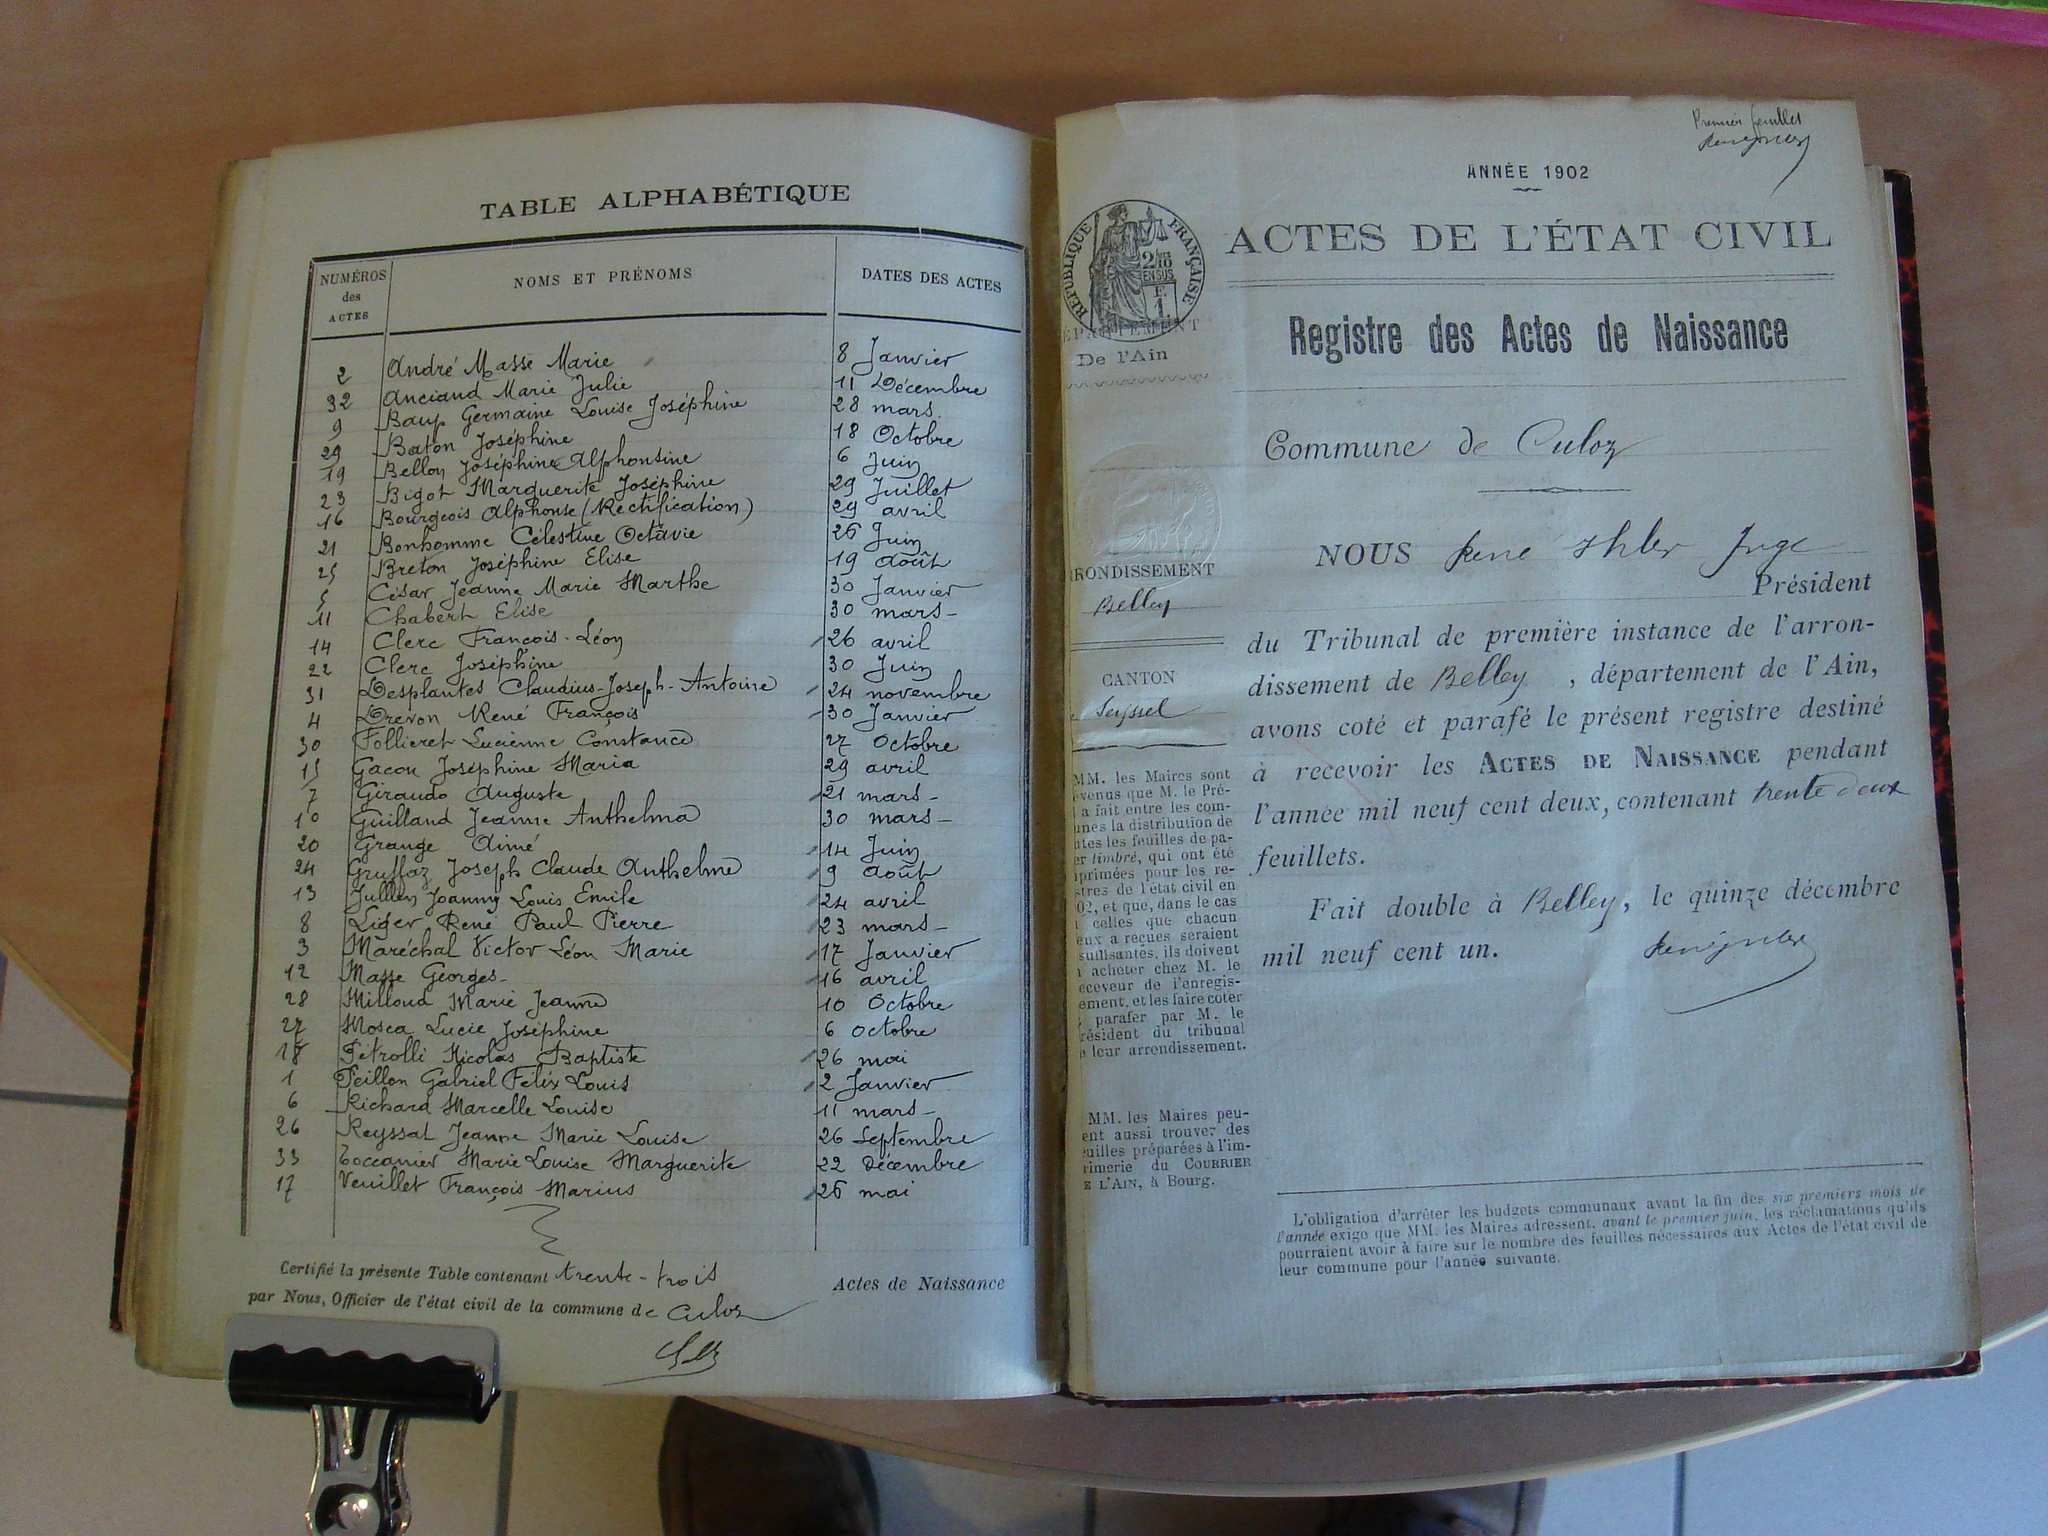 TABLE ALPHABÉTIQUE
NUMÉROS des ACTES NOMS ET PRÉNOMS DATES DES ACTES
2 André Masse Marie 8 Janvier
32 Anciand Marie Julie 11 Décembre
9 Baup Germaine Louise Joséphine 28 mars
29 Baton Joséphine 18 Octobre
19 Bellon Joséphine Alphonsine 6 Juin
23 Bigot Marguerite Joséphine 29 Juillet
16 Bourgeois Alphonse (Rectification) 29 avril
21 Bonhomme Célestine Octavie 26 Juin
25 Breton Joséphine Elise 19 août
5 César Jeanne Marie Marthe 30 Janvier
11 Chabert Elise 30 mars
14 Clerc François-Léon 26 avril
22 Clerc Joséphine 30 Juin
31 Desplantes Claudius-Joseph-Antoine 24 novembre
4 Drevon René François 30 Janvier
30 Follieret Lucienne Constance 27 Octobre
15 Gacon Joséphine Maria 29 avril
7 Giraudo Auguste 21 mars
10 Guilland Jeanne Anthelma 30 mars
20 Grange Aimé 14 Juin
24 Gruffaz Joseph Claude Anthelme 9 août
13 Jullien Joanny Louis Emile 24 avril
8 Liger René Paul Pierre 23 mars
3 Maréchal Victor Léon Marie 17 Janvier
12 Masse Georges 16 avril
28 Milloud Marie Jeanne 10 Octobre
27 Mosca Lucie Joséphine 6 Octobre
18 Pétrolli Nicolas Baptiste 26 mai
1 Peillon Gabriel Félix Louis 2 Janvier
6 Richard Marcelle Louise 11 mars
26 Reyssat Jeanne Marie Louise 26 Septembre
33 Toccanier Marie Louise Marguerite 22 Décembre
17 Veuillet François Marius 26 mai
Certifié la présente Table contenant trente-trois Actes de Naissance
par Nous, Officier de l'état civil de la commune de Culoz
Premier feuillet
ANNÉE 1902
ACTES DE L'ÉTAT CIVIL
RÉPUBLIQUE FRANÇAISE
2/10 EN SUS
F. 1
ÉPARTEMENT
De l'Ain
Registre des Actes de Naissance
Commune de Culoz
RRONDISSEMENT
Belley
CANTON
Seyssel
MM. les Maires sont
venus que M. le Pré-
a fait entre les com-
unes la distribution de
utes les feuilles de pa-
er timbré, qui ont été
primées pour les re-
stres de l'état civil en
02, et que, dans le cas
celles que chacun
eux a reçues seraient
suffisantes, ils doivent
acheter chez M. le
eceveur de l'enregis-
ement, et les faire coter
parafer par M. le
résident du tribunal
leur arrondissement.
MM. les Maires peu-
ent aussi trouver des
euilles préparées à l'im-
rimerie du COURRIER
E L'AIN, à Bourg.
NOUS René Ihler Juge
Président
du Tribunal de première instance de l'arron-
dissement de Belley, département de l'Ain,
avons coté et parafé le présent registre destiné
à recevoir les ACTES DE NAISSANCE pendant
l'année mil neuf cent deux, contenant trente deux
feuillets.
Fait double à Belley, le quinze décembre
mil neuf cent un.
L'obligation d'arrêter les budgets communaux avant la fin des six premiers mois de
l'année exige que MM. les Maires adressent, avant le premier juin, les réclamations qu'ils
pourraient avoir à faire sur le nombre des feuilles nécessaires aux Actes de l'état civil de
leur commune pour l'année suivante.